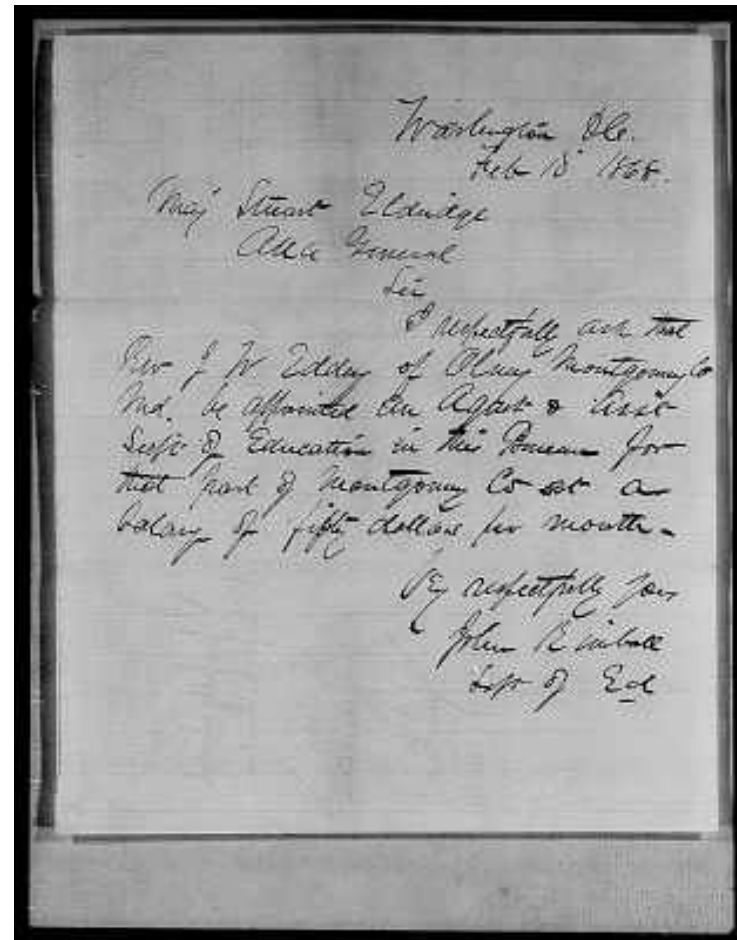 Washington D.C.
Feb 18 1868.
Maj Stuart Eldridge
A A A General
Sir
I respectfully ask that
Rev J. W. Eddy of Olney Montgomery Co
Md. be appointed an Agent & Assit
Supt of Education in this Bureau for
that part of Montgomery Co at a
Salary of fifty dollars per month.
Vy respectfully yours
John Kimball
Supt of Ed